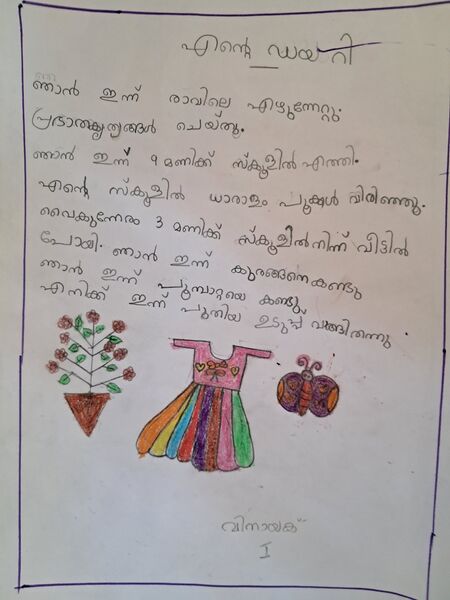 എന്റെ ഡയറി
ഞാൻ ഇന്ന് രാവിലെ എഴുന്നേറ്റു.
പ്രഭാതകൃത്യങ്ങൾ ചെയ്തു.
ഞാൻ ഇന്ന് 9 മണിക്ക് സ്കൂളിൽ എത്തി.
എന്റെ സ്കൂളിൽ ധാരാളം പൂക്കൾ വിരിഞ്ഞു.
വൈകുന്നേരം 3 മണിക്ക് സ്കൂളിൽ നിന്ന് വീട്ടിൽ
പോയി. ഞാൻ ഇന്ന് കുരങ്ങനെ കണ്ടു
ഞാൻ ഇന്ന് പൂമ്പാറ്റയെ കണ്ടു
എനിക്ക് ഇന്ന് പുതിയ ഉടുപ്പ് വാങ്ങിതന്നു
വിനായക്
I